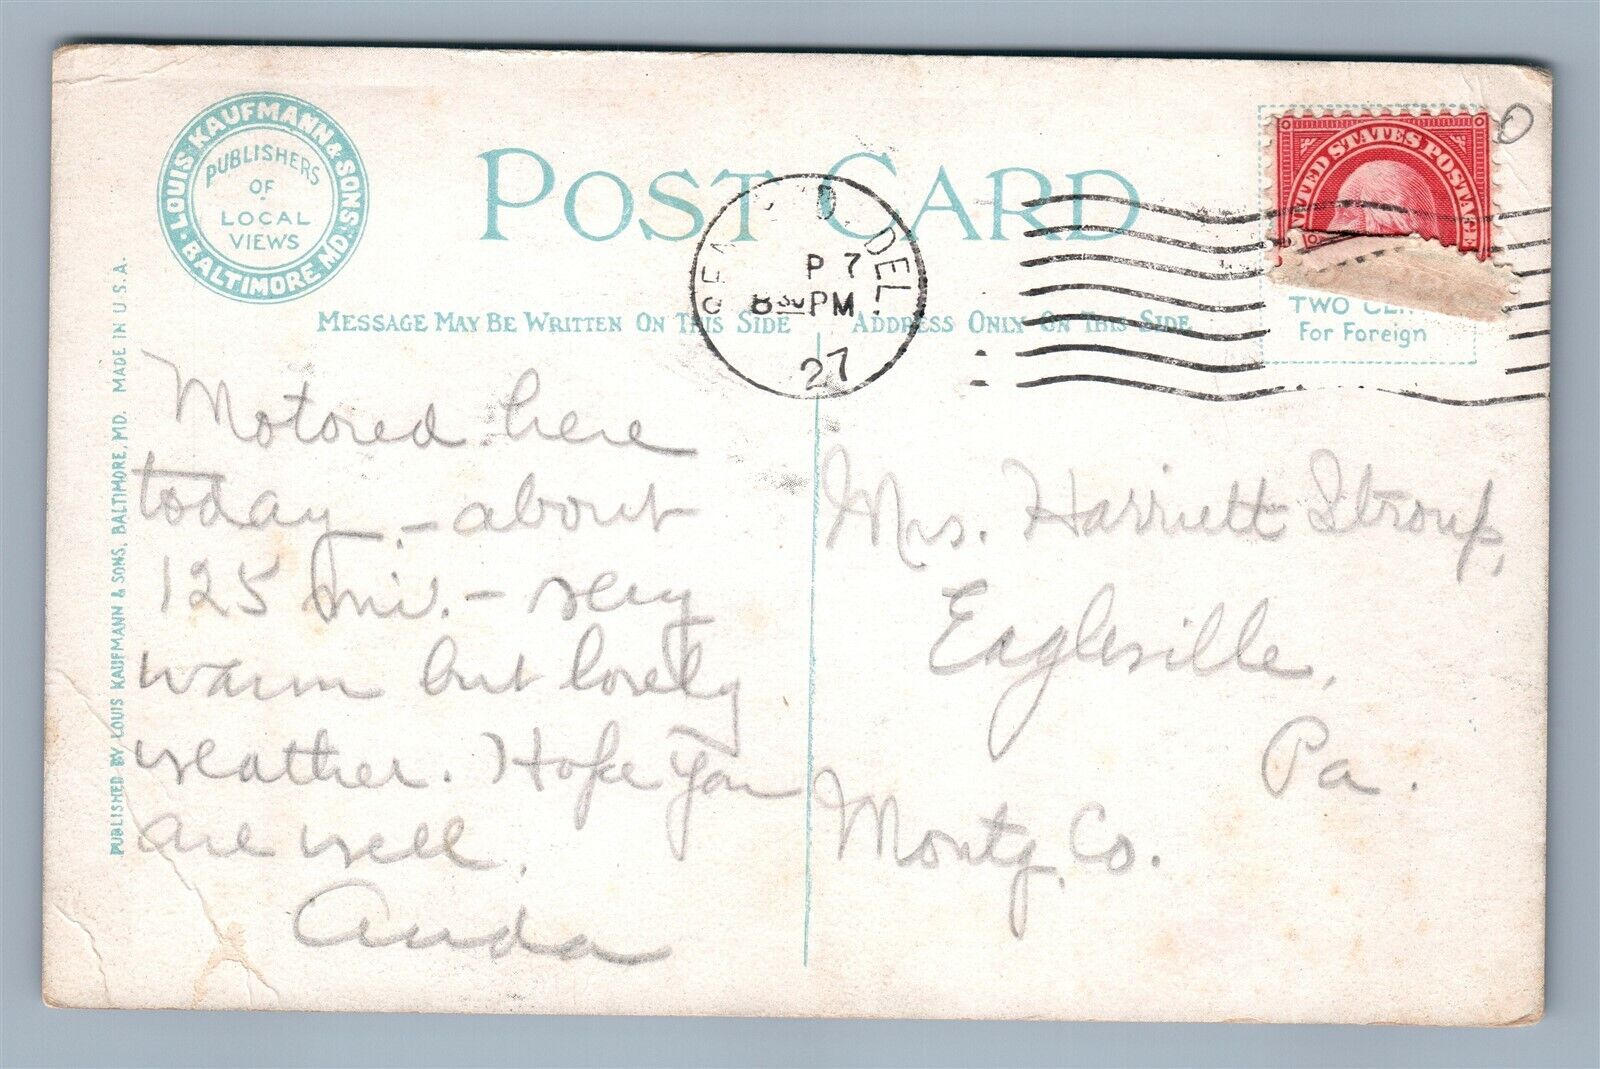 LOUIS KAUFMANN & SONS
BALTIMORE, MD.
PUBLISHERS
OF
LOCAL
VIEWS
POST CARD
MESSAGE MAY BE WRITTEN ON THIS SIDE
ADDRESS ONLY ON THIS SIDE
PUBLISHED BY LOUIS KAUFMANN & SONS, BALTIMORE, MD. MADE IN U.S.A.
DEL.
P 7
8 30 PM
27
UNITED STATES POSTAGE
TWO CENT
For Foreign
Motored here
today, - about
125 mi. - very
warm but lovely
weather. Hope you
are well.
Mrs. Harriett Stroup,
Eagleville,
Pa.
Montg. Co.